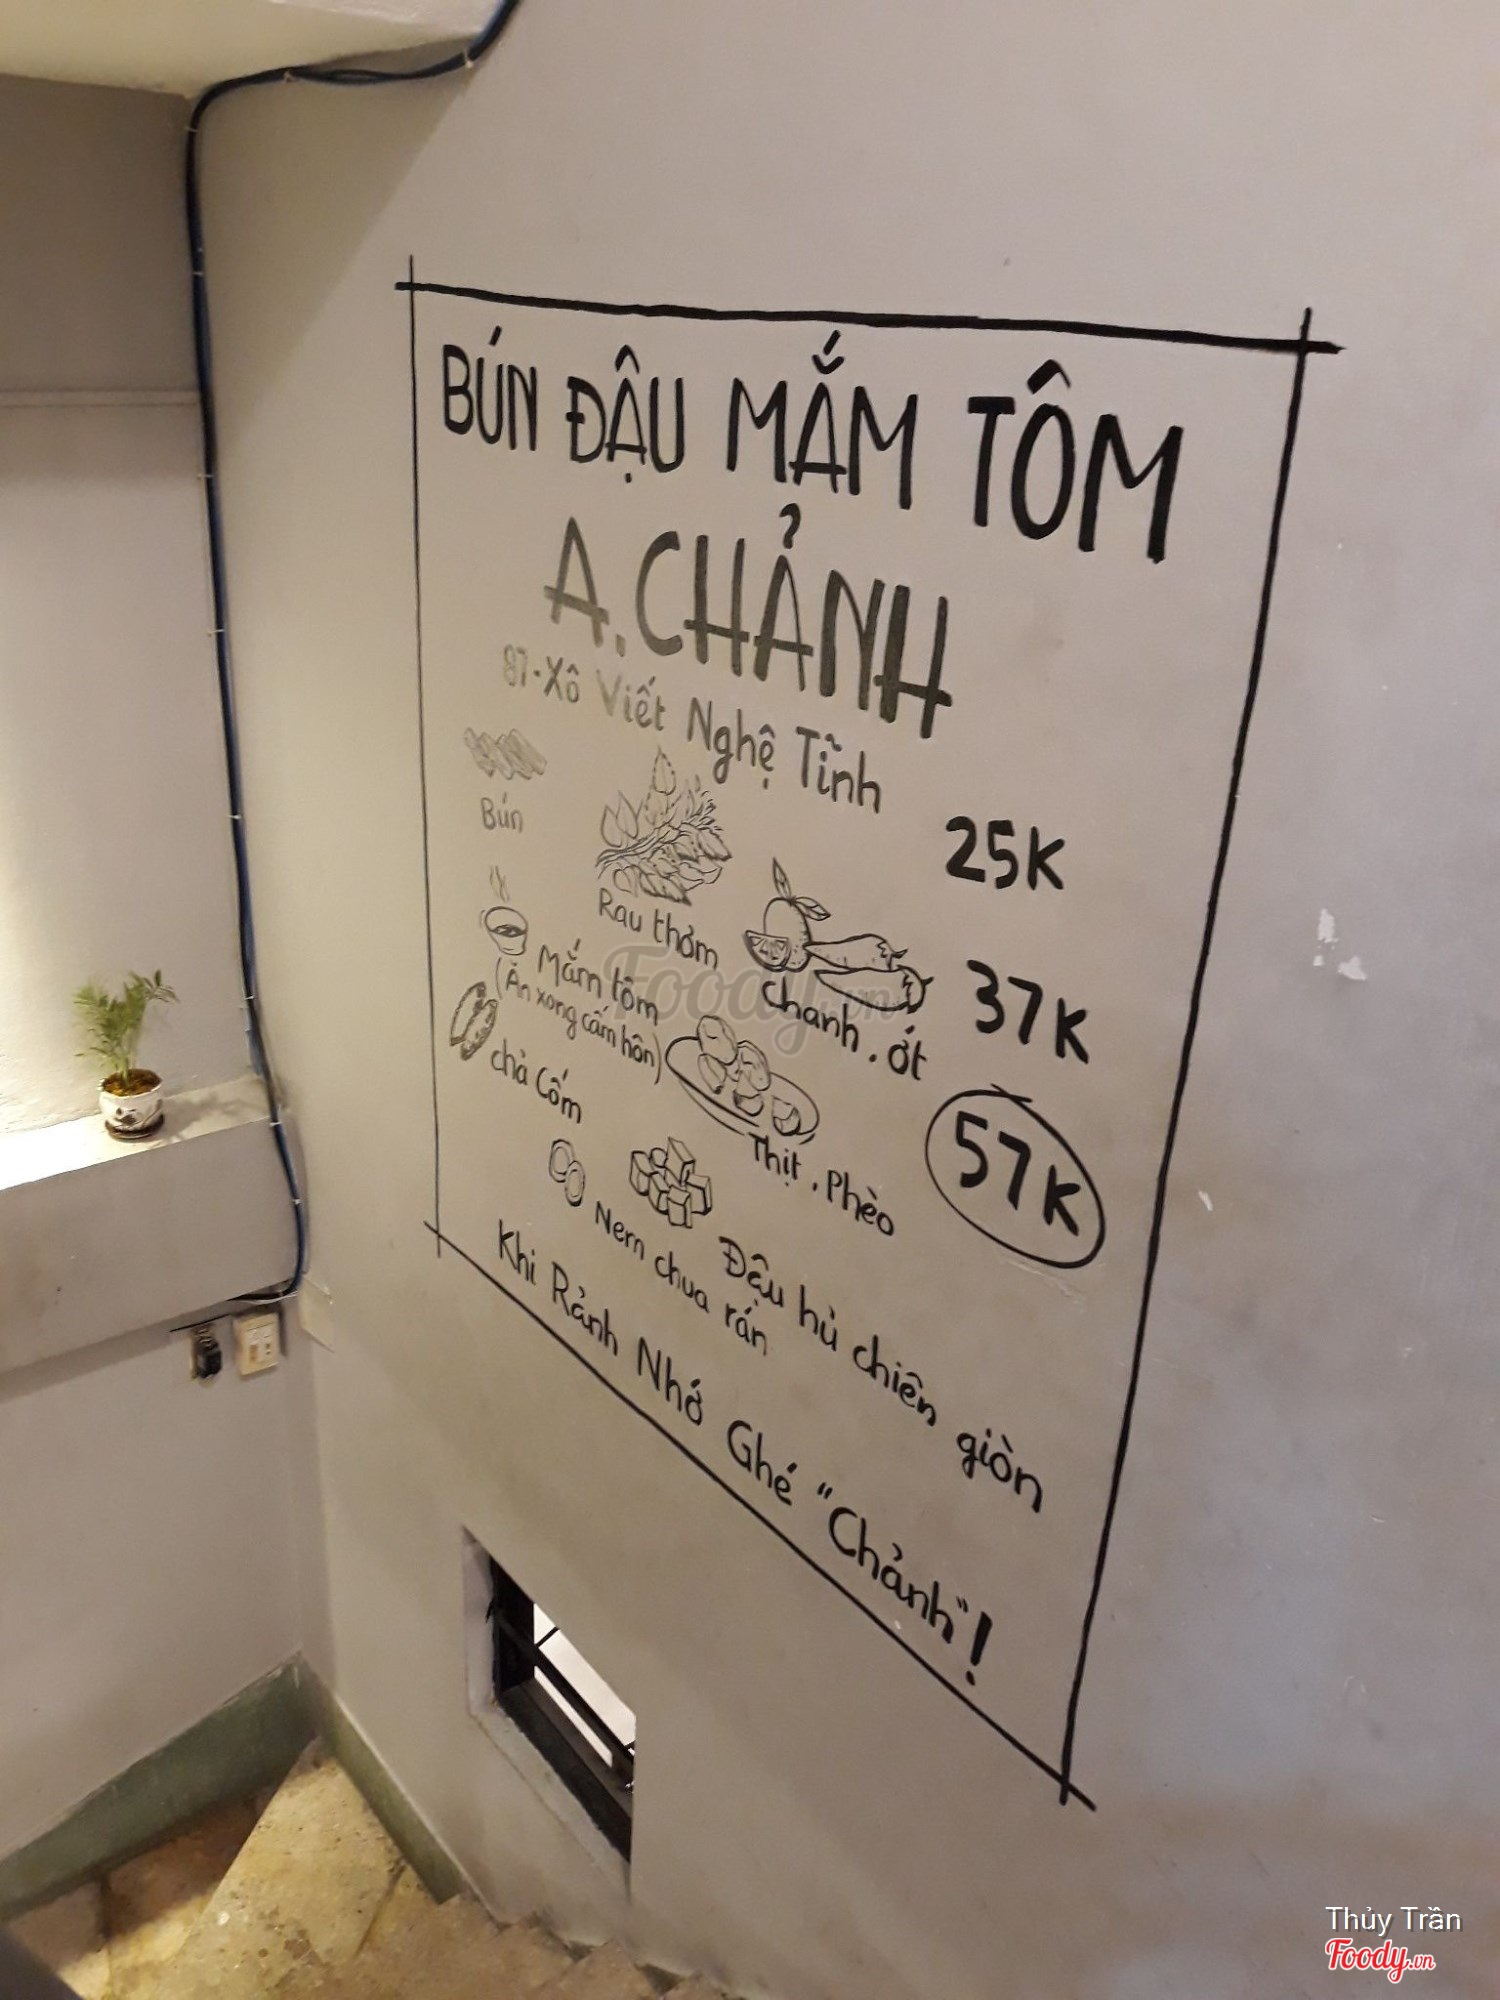 BÚN ĐẬU MẮM TÔM
A.CHẢNH
87-Xô Viết Nghệ Tĩnh
Bún
25K
Rau thơm
Mắm tôm
(Ăn xong cấm hôn)
Chanh, ớt
37K
chả Cốm
Thịt, Phèo
57K
Nem chua rán
Đậu hủ chiên giòn
Khi Rảnh Nhớ Ghé "Chảnh"!
Foody.vn
Thủy Trần
Foody.vn